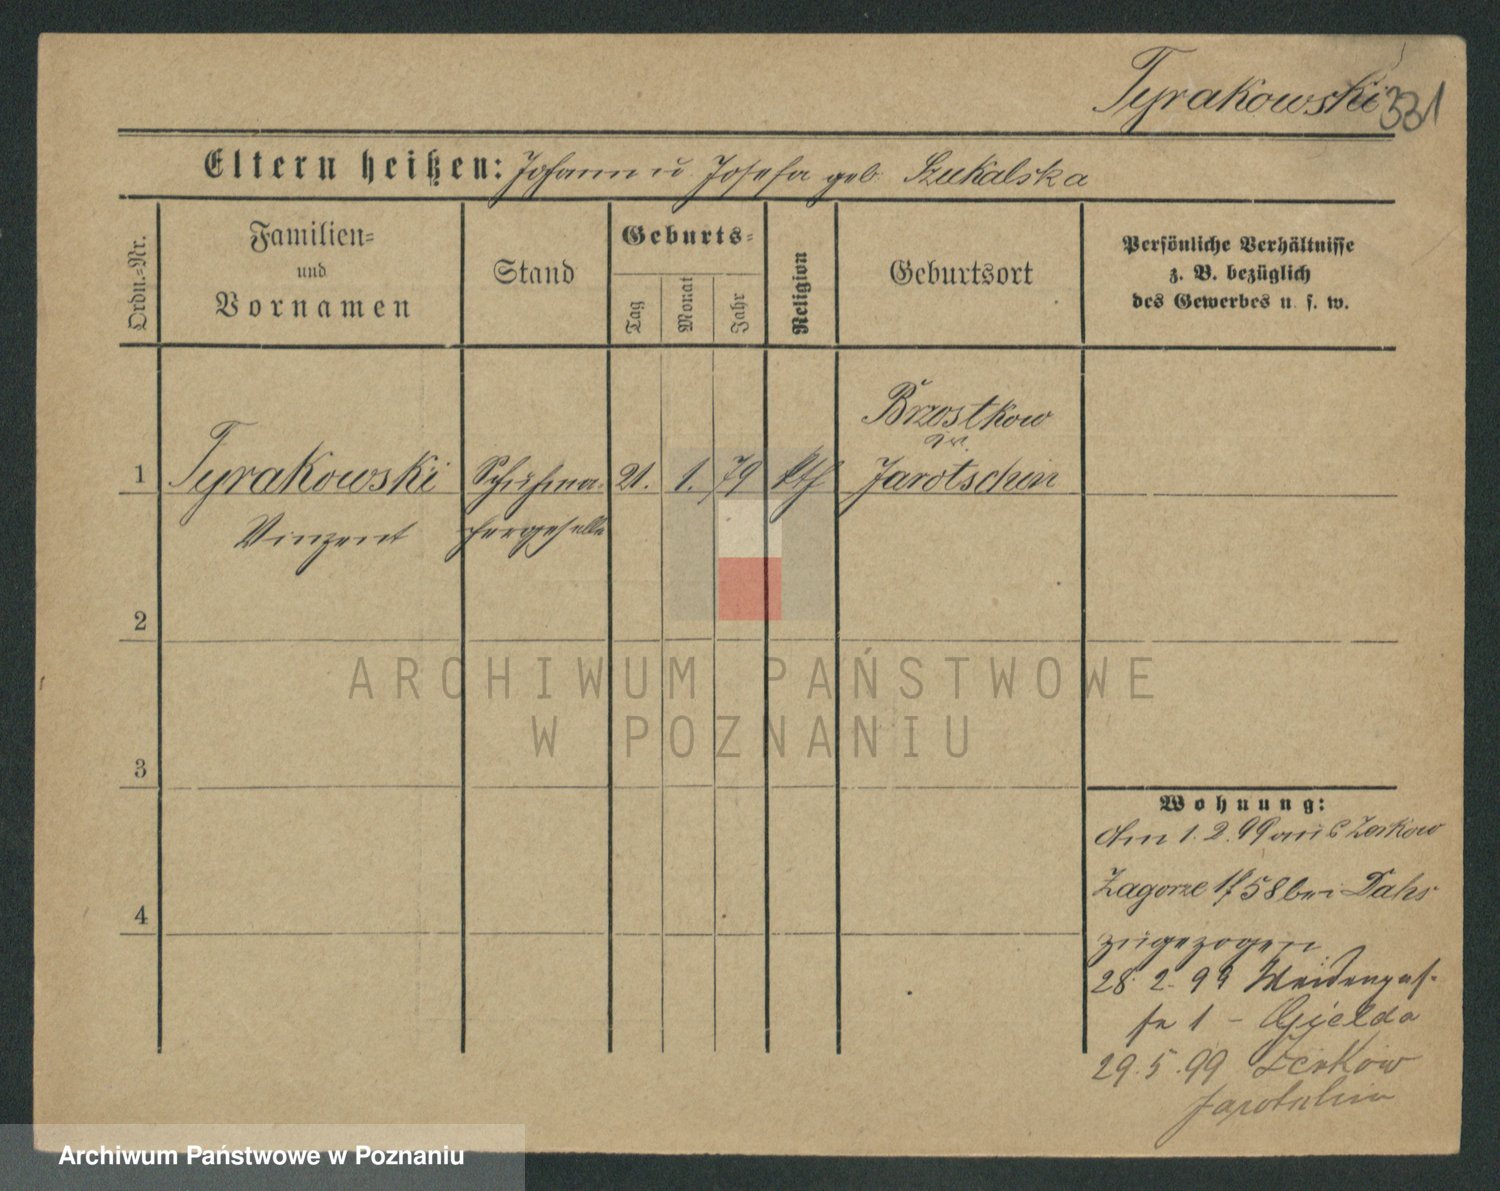 Tyrakowski 331
Eltern heißen: Johann u. Josefa geb. Szukalska
Ordn.=Nr.
Familien=
und
Vornamen
Stand
Geburts=
Tag
Monat
Jahr
Religion
Geburtsort
Persönliche Verhältnisse
z. B. bezüglich
des Gewerbes u. s. w.
Brzostkow
Kr.
1 Tyrakowski Schuhma= 21. 1. 79 kth Jarotschin
Vinzent chergeselle
2
ARCHIWUM PAŃSTWOWE
W POZNANIU
3
Wohnung:
Am 1. 2. 99 aus Zerkow
Zagorze 1/58 bei Dahs
4
zugezogen
28. 2. 99 Weidengas-
se 1 - Gielda
29. 5. 99 Zerkow
Jarotschin
Archiwum Państwowe w Poznaniu